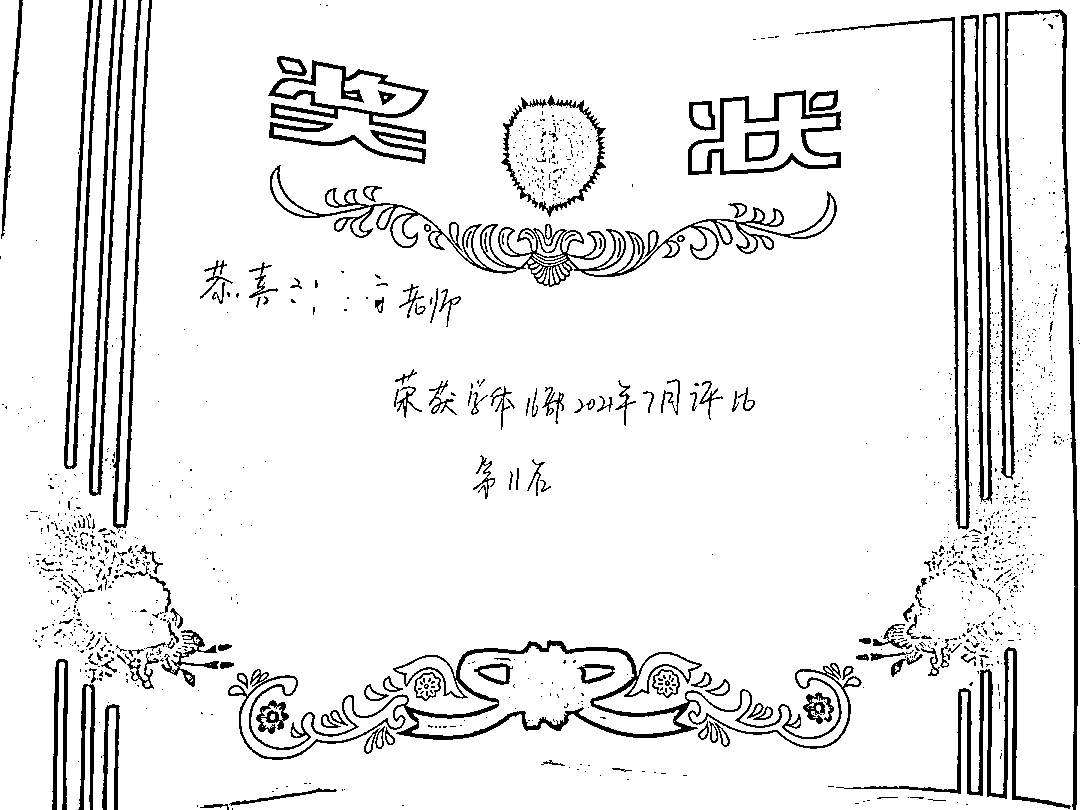 奖状
恭喜 老师
荣获学体 部2021年7月评比
第11名